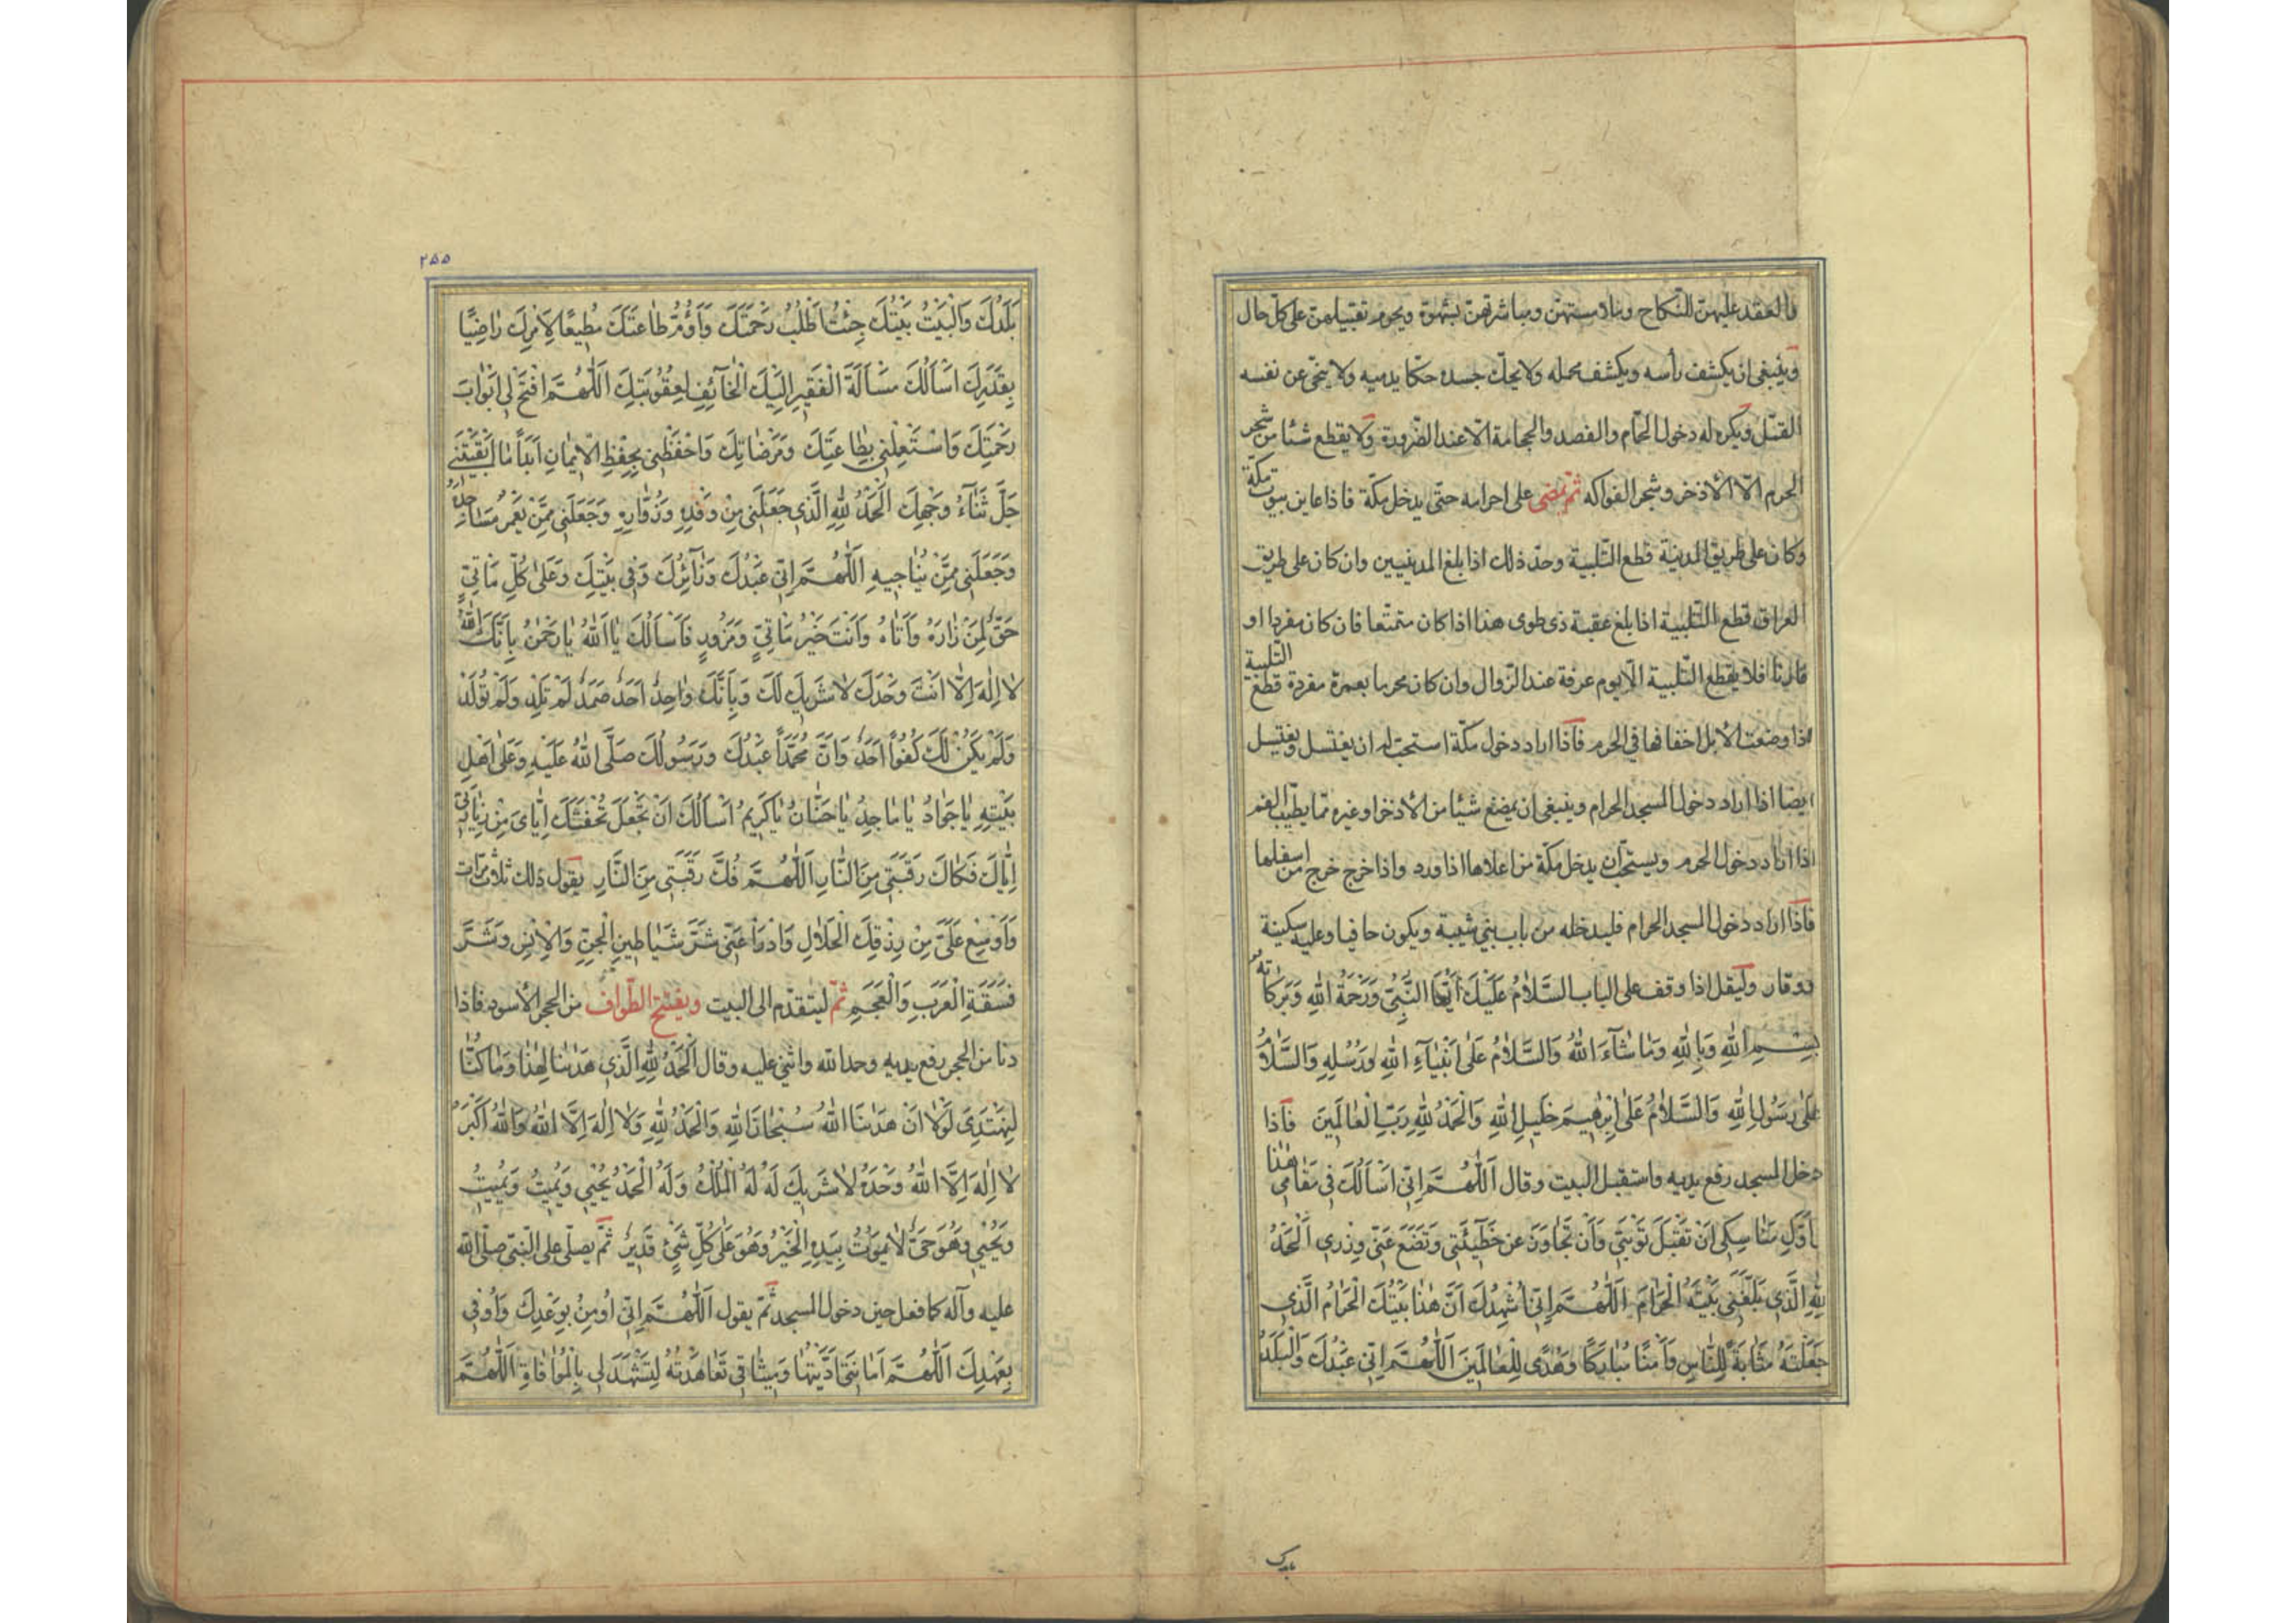 والعقد عليهن للنكاح وملامستهن ومباشرتهن بشهوة ويحرم تقبيلهن على كل حال
وينبغى ان يكشف رأسه ويكشف محمله ولا يحك جسده حكا يدميه ولا ينحى عن نفسه
القمل ويكره له دخول الحمام والفصد والحجامة الا عند الضرورة ولا يقطع شيئا من شجر
الحرم الا الأذخر وشجر الفواكه ثم يمضى على احرامه حتى يدخل مكة فاذا عاين بيوت مكة
وكان على طريق المدينة قطع التلبية وحد ذلك اذا بلغ المدنيين وان كان على طريق
العراق قطع التلبية اذا بلغ عقبة ذى طوى هذا اذا كان متمتعا فان كان مفردا او
قارنا فلا يقطع التلبية الا يوم عرفة عند الزوال وان كان محرما بعمرة مفردة قطع التلبية
اذا وضعت الأبل اخفافها في الحرم فاذا اراد دخول مكة استحب له ان يغتسل ويغتسل
ايضا اذا اراد دخول المسجد الحرام وينبغى ان يمضغ شيئا من الأذخر او غيره مما يطيب الفم
اذا اراد دخول الحرم ويستحب ان يدخل مكة من اعلاها اذا ورد واذا خرج خرج من اسفلها
فاذا اراد دخول المسجد الحرام فليدخله من باب بني شيبة ويكون حافيا وعليه سكينة
ووقار وليقل اذا وقف على الباب السَّلامُ عَلَيْكَ أَيُّهَا النَّبِيُّ وَرَحْمَةُ اللهِ وَبَرَكَاتُهُ
بِسْمِ اللهِ وَبِاللهِ وَمَا شَاءَ اللهُ وَالسَّلَامُ عَلَى اَنْبِيَاءِ اللهِ وَرُسُلِهِ وَالسَّلَامُ
عَلَى رَسُولِ اللهِ وَالسَّلَامُ عَلَى اِبْرٰهِيمَ خَلِيلِ اللهِ وَالْحَمْدُ لِلهِ رَبِّ الْعَالَمِينَ فاذا
دخل المسجد رفع يديه واستقبل البيت وقال اَللّٰهُمَّ اِنِّي اَسْأَلُكَ فِي مَقَامِي هٰذَا
اَوَّلِ مَنَاسِكِي اَنْ تَقْبَلَ تَوْبَتِي وَاَنْ تَجَاوَزَ عَنْ خَطِيئَتِي وَتَضَعَ عَنِّي وِزْرِي اَلْحَمْدُ
لِلهِ الَّذِي بَلَّغَنِي بَيْتَهُ الْحَرَامَ اَللّٰهُمَّ اِنِّي اُشْهِدُكَ اَنَّ هٰذَا بَيْتُكَ الْحَرَامُ الَّذِي
جَعَلْتَهُ مَثَابَةً لِلنَّاسِ وَاَمْنًا مُبَارَكًا وَهُدًى لِلْعَالَمِينَ اَللّٰهُمَّ اِنِّي عَبْدُكَ وَالْبَلَدُ
٢٥٥
بَلَدُكَ وَالْبَيْتُ بَيْتُكَ جِئْتُ اَطْلُبُ رَحْمَتَكَ وَاَؤُمُّ طَاعَتَكَ مُطِيعًا لِاَمْرِكَ رَاضِيًا
بِقَدَرِكَ اَسْأَلُكَ مَسْأَلَةَ الْفَقِيرِ اِلَيْكَ الْخَائِفِ لِعُقُوبَتِكَ اَللّٰهُمَّ افْتَحْ لِي اَبْوَابَ
رَحْمَتِكَ وَاسْتَعْمِلْنِي بِطَاعَتِكَ وَمَرْضَاتِكَ وَاحْفَظْنِي بِحِفْظِ الْاِيمَانِ اَبَدًا مَا اَبْقَيْتَنِي
جَلَّ ثَنَاءُ وَجْهِكَ اَلْحَمْدُ لِلهِ الَّذِي جَعَلَنِي مِنْ وَفْدِهِ وَزُوَّارِهِ وَجَعَلَنِي مِمَّنْ يَعْمُرُ مَسَاجِدَهُ
وَجَعَلَنِي مِمَّنْ يُنَاجِيهِ اَللّٰهُمَّ اِنِّي عَبْدُكَ وَزَائِرُكَ وَفِي بَيْتِكَ وَعَلَى كُلِّ مَاْتِيٍّ
حَقٌّ لِمَنْ زَارَهُ وَاَتَاهُ وَاَنْتَ خَيْرُ مَاْتِيٍّ وَمَزُورٍ فَاَسْأَلُكَ يَا اَللهُ يَا رَحْمٰنُ بِاَنَّكَ اللهُ
لَا اِلٰهَ اِلَّا اَنْتَ وَحْدَكَ لَا شَرِيكَ لَكَ وَبِاَنَّكَ وَاحِدٌ اَحَدٌ صَمَدٌ لَمْ تَلِدْ وَلَمْ تُولَدْ
وَلَمْ يَكُنْ لَكَ كُفُوًا اَحَدٌ وَاَنَّ مُحَمَّدًا عَبْدُكَ وَرَسُولُكَ صَلَّى اللهُ عَلَيْهِ وَعَلَى اَهْلِ
بَيْتِهِ يَا جَوَادُ يَا مَاجِدُ يَا حَنَّانُ يَا كَرِيمُ اَسْأَلُكَ اَنْ تَجْعَلَ تُحْفَتَكَ اِيَّايَ مِنْ زِيَارَتِي
اِيَّاكَ فَكَاكَ رَقَبَتِي مِنَ النَّارِ اَللّٰهُمَّ فُكَّ رَقَبَتِي مِنَ النَّارِ يقول ذلك ثلاث مرات
وَاَوْسِعْ عَلَيَّ مِنْ رِزْقِكَ الْحَلَالِ وَادْرَأْ عَنِّي شَرَّ شَيَاطِينِ الْجِنِّ وَالْاِنْسِ وَشَرَّ
فَسَقَةِ الْعَرَبِ وَالْعَجَمِ ثم ليتقدم الى البيت ويفتتح الطواف من الحجر الأسود فاذا
دنا من الحجر رفع يديه وحمد الله واثنى عليه وقال اَلْحَمْدُ لِلهِ الَّذِي هَدٰنَا لِهٰذَا وَمَا كُنَّا
لِنَهْتَدِيَ لَوْلَا اَنْ هَدٰنَا اللهُ سُبْحَانَ اللهِ وَالْحَمْدُ لِلهِ وَلَا اِلٰهَ اِلَّا اللهُ وَاللهُ اَكْبَرُ
لَا اِلٰهَ اِلَّا اللهُ وَحْدَهُ لَا شَرِيكَ لَهُ لَهُ الْمُلْكُ وَلَهُ الْحَمْدُ يُحْيِي وَيُمِيتُ وَيُمِيتُ
وَيُحْيِي وَهُوَ حَيٌّ لَا يَمُوتُ بِيَدِهِ الْخَيْرُ وَهُوَ عَلَى كُلِّ شَيْءٍ قَدِيرٌ ثم يصلى على النبى صلى الله
عليه وآله كما فعل حين دخول المسجد ثم يقول اَللّٰهُمَّ اِنِّي اُومِنُ بِوَعْدِكَ وَاُوفِي
بِعَهْدِكَ اَللّٰهُمَّ اَمَانَتِي اَدَّيْتُهَا وَمِيثَاقِي تَعَاهَدْتُهُ لِتَشْهَدَ لِي بِالْمُوَافَاةِ اَللّٰهُمَّ